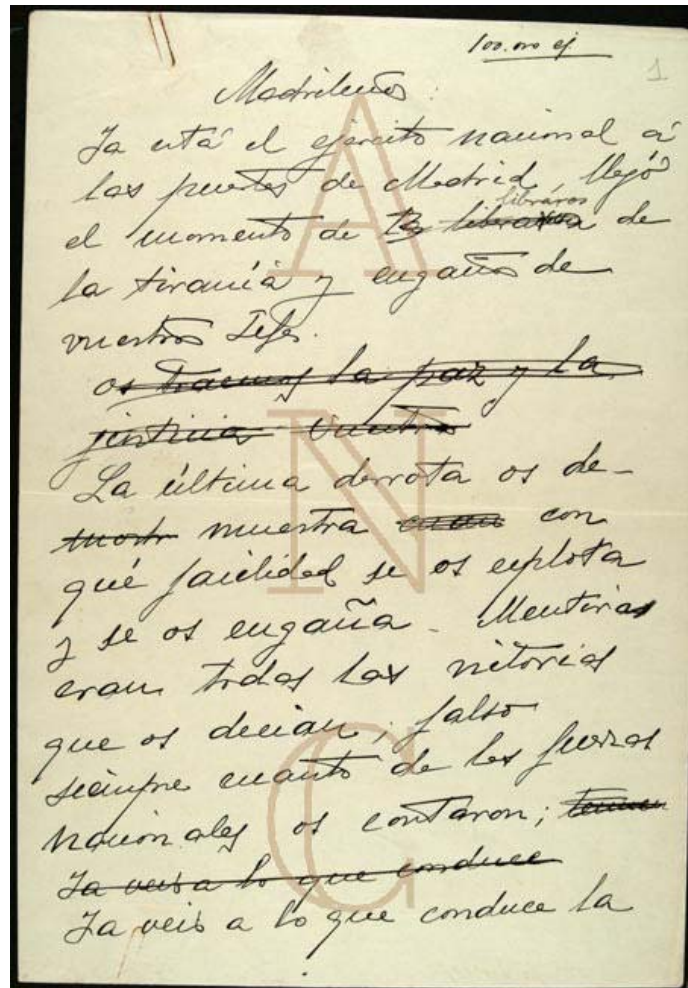 100.000 ej
1
Madrileños:
Ya está el ejército nacional á
las puertas de Madrid, llegó
libráros
el momento de de
la tiranía y engaños de
vuestros Jefes.
os traemos la paz y la
justicia vuestra
La última derrota os de-
mostr muestra con
qué facilidad se os explota
y se os engaña. Mentiras
eran todas las victorias
que os decían; falso
siempre cuanto de las fuerzas
nacionales os contaron;
Ya veis a lo que conduce
Ya veis a lo que conduce la
ANC